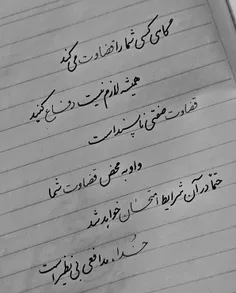 گاهی کسی شما را قضاوت می‌کند
همیشه لازم نیست دفاع کنید
قضاوت صفتی ناپسند است
و او به محض قضاوت شما
حتما در آن شرایط امتحان خواهد شد
خداء مدافعی بی نظیر است